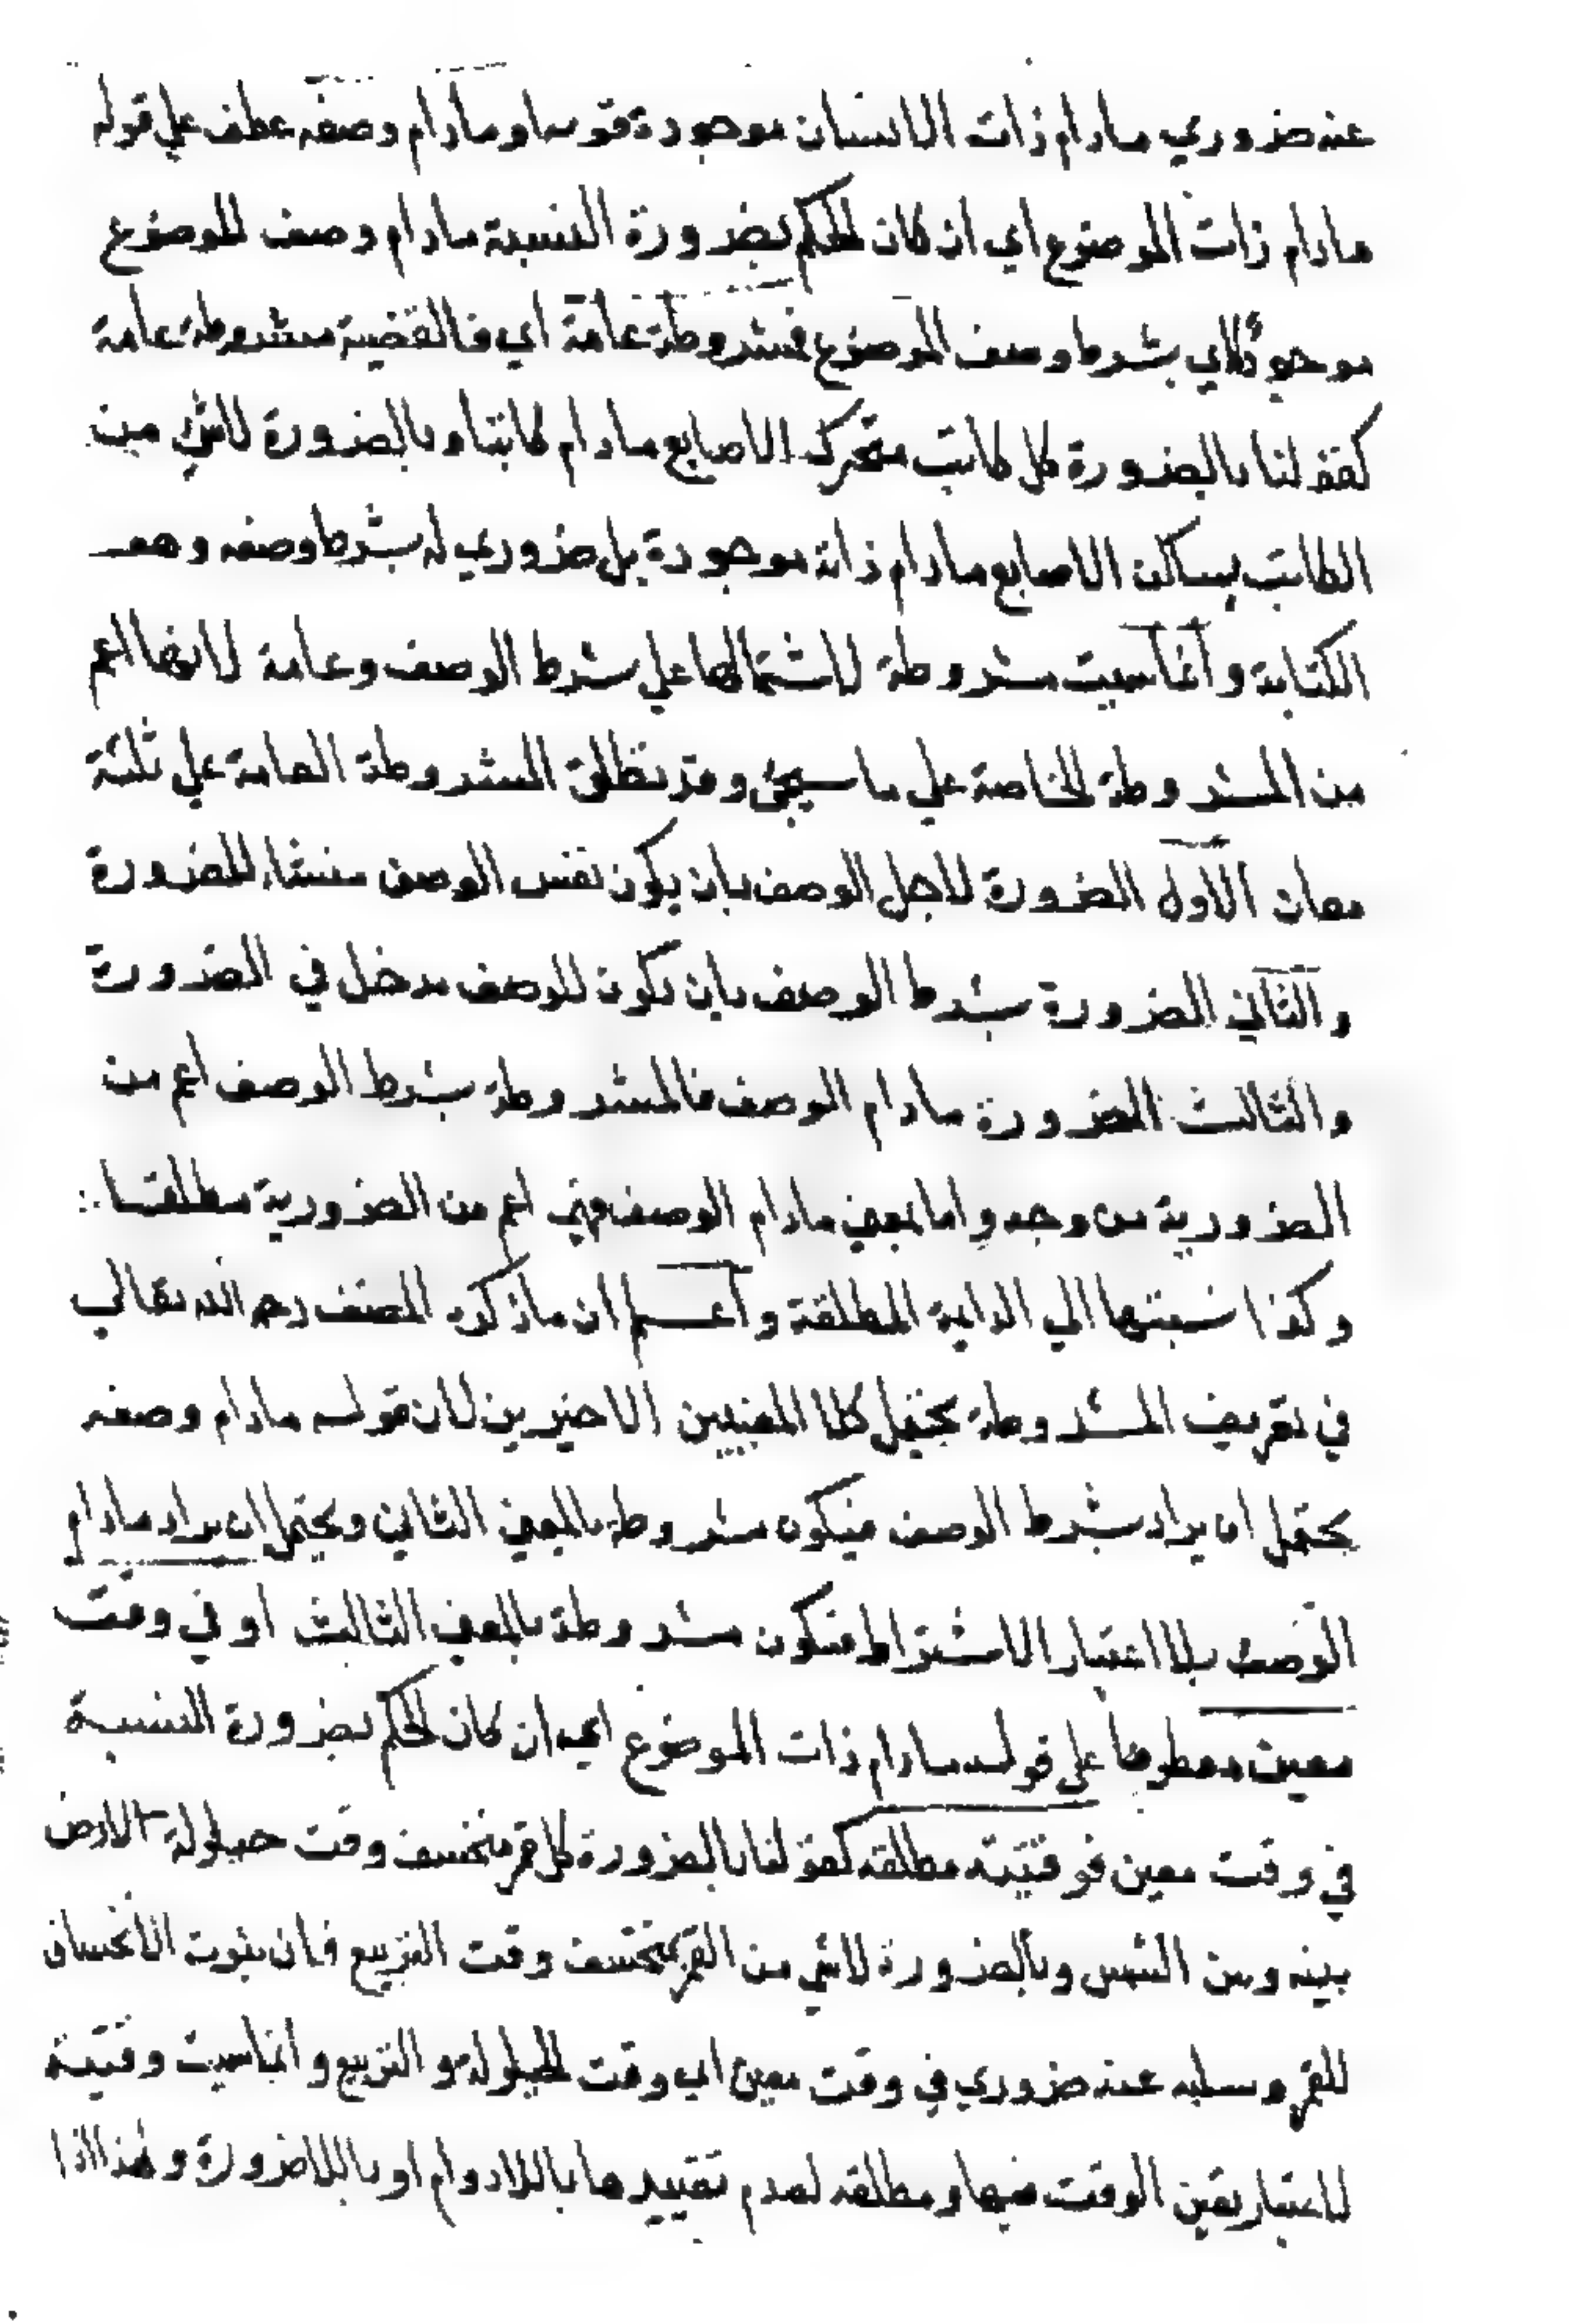 عنه ضروري مادام ذات الانسان موجودة قوله او مادام وصفه عطف علي قوله
مادام ذات الموضوع اي ان كان الحكم بضرورة النسبة مادام وصف الموضوع
موجودًا اي بشرط وصف الموضوع فمشروطة عامة اي فالقضية مشروطة عامة
كقولنا بالضرورة كل كاتب متحرك الاصابع مادام كاتبا وبالضرورة لاشئ من
الكاتب بساكن الاصابع مادام ذاته موجودة بل ضروري له بشرط وصفه وهو
الكتابة وانما سميت مشروطة لاشتمالها علي شرط الوصف وعامة لانها اعم
من المشروطة الخاصة علي ما سيجئ وقد تطلق المشروطة العامة علي ثلثة
معان الاول الضرورة لاجل الوصف بان يكون نفس الوصف منشاء للضرورة
والثاني الضرورة بشرط الوصف بان يكون للوصف مدخل في الضرورة
والثالث الضرورة مادام الوصف فالمشروطة بشرط الوصف اعم من
الضرورية من وجه واما بمعني مادام الوصف فهي اعم من الضرورية مطلقا
وكذا نسبتها الي الدايمة المطلقة واعلم ان ما ذكره المصنف رحم الله تعالي
في تعريف المشروطة يحتمل كلا المعنيين الاخيرين لان قوله مادام وصفه
يحتمل ان يراد بشرط الوصف فيكون مشروطة بالمعني الثاني ويحتمل ان يراد مادام
الوصف بلا اعتبار الاشتراط فتكون مشروطة بالمعني الثالث او في وقت
معين معطوف علي قوله مادام ذات الموضوع اي ان كان الحكم بضرورة النسبة
في وقت معين فوقتية مطلقه كقولنا بالضرورة كل قمر منخسف وقت حيلولة الارض
بينه وبين الشمس وبالضرورة لاشي من القمر بمنخسف وقت التربيع فان ثبوت الانخساف
للقمر وسلبه عنه ضروري في وقت معين اي وقت الحيلولة والتربيع وانما سميت وقتية
لاعتبار تعين الوقت فيها ومطلقه لعدم تقييدها باللادوام او باللاضرورة وهذا اذا